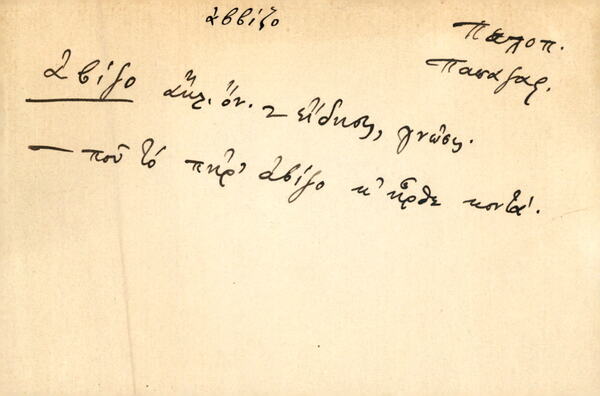 ἀββίζο
Πελοπ.
Παπαζαφ.
ἀβίζο ἄκλ. ὄν. - εἴδησις, γνῶσις.
— ποῦ τὸ πῆρ' ἀβίζο κ' ἦρθε κοντά.